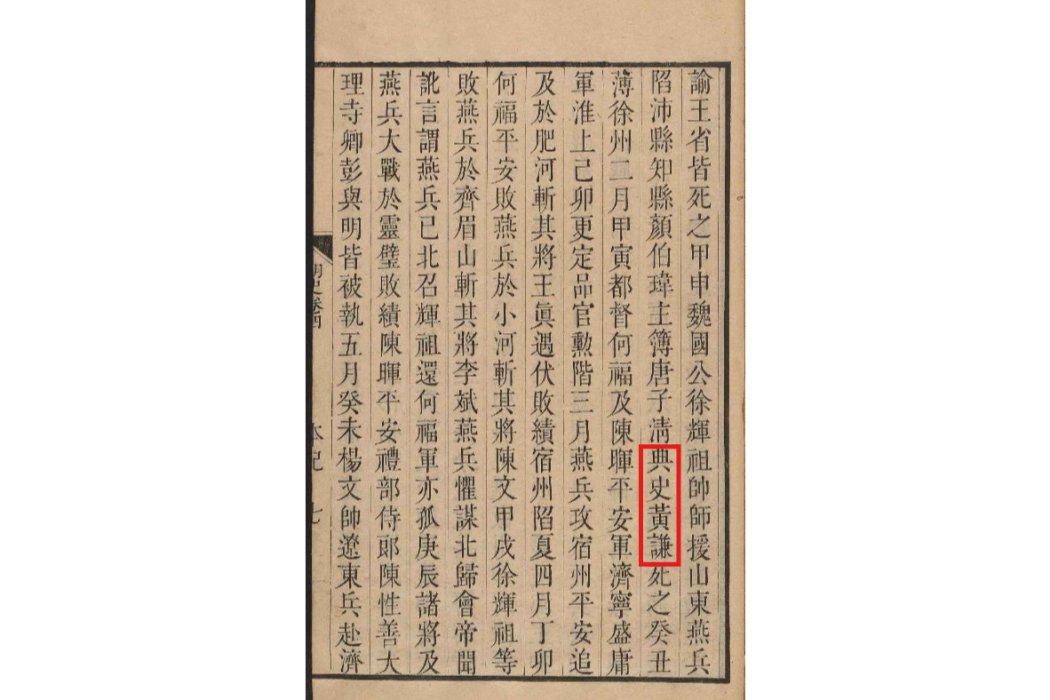 諭王省皆死之甲申魏國公徐輝祖帥師援山東燕兵
陷沛縣知縣顏伯瑋主簿唐子淸典史黃謙死之癸丑
薄徐州二月甲寅都督何福及陳暉平安軍濟寧盛庸
軍淮上己卯更定品官勳階三月燕兵攻宿州平安追
及於肥河斬其將王眞遇伏敗績宿州陷夏四月丁卯
何福平安敗燕兵於小河斬其將陳文甲戌徐輝祖等
敗燕兵於齊眉山斬其將李斌燕兵懼謀北歸會帝聞
訛言謂燕兵已北召輝祖還何福軍亦孤庚辰諸將及
燕兵大戰於靈璧敗績陳暉平安禮部侍郎陳性善大
理寺卿彭與明皆被執五月癸未楊文帥遼東兵赴濟